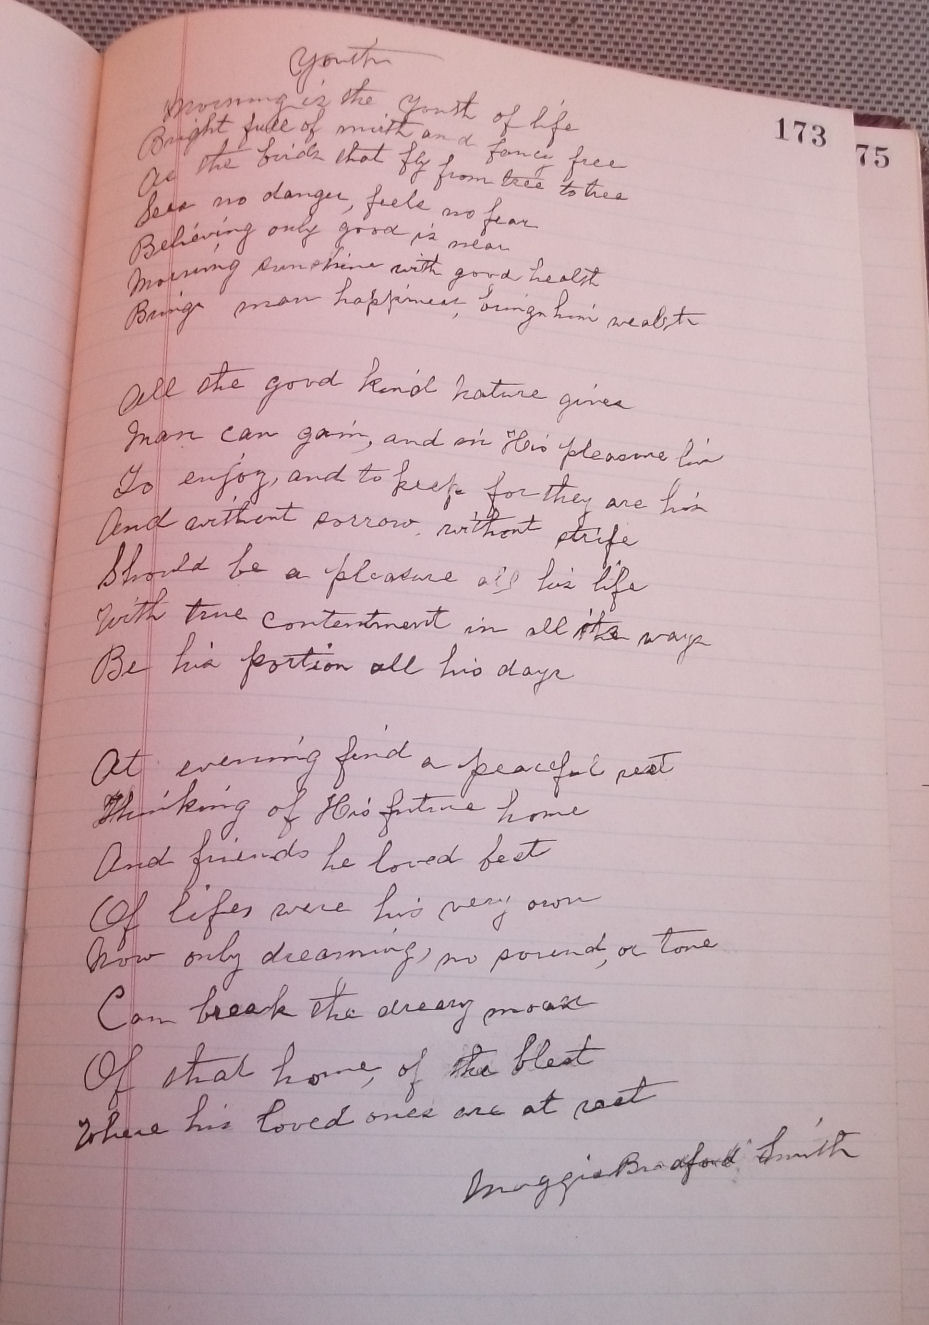 Youth
173
75
Morning is the Youth of life
Bright full of mirth and fancy free
As the birds that fly from tree to tree
Sees no danger, feels no fear
Believing only good is near
Morning sunshine with good health
Brings man happiness, brings him wealth
All the good kind Nature gives
Man can gain, and in His pleasure live
To enjoy, and to keep for they are his
And without sorrow, without strife
Should be a pleasure all his life
With true contentment in all the ways
Be his portion all his days
At evening find a peaceful rest
Thinking of His future home
And friends he loved best
Of lifes were his very own
Now only dreaming, no sound, or tone
Can break the dreary
Of that home, of the blest
Where his loved ones are at rest
Maggie Bradford Smith